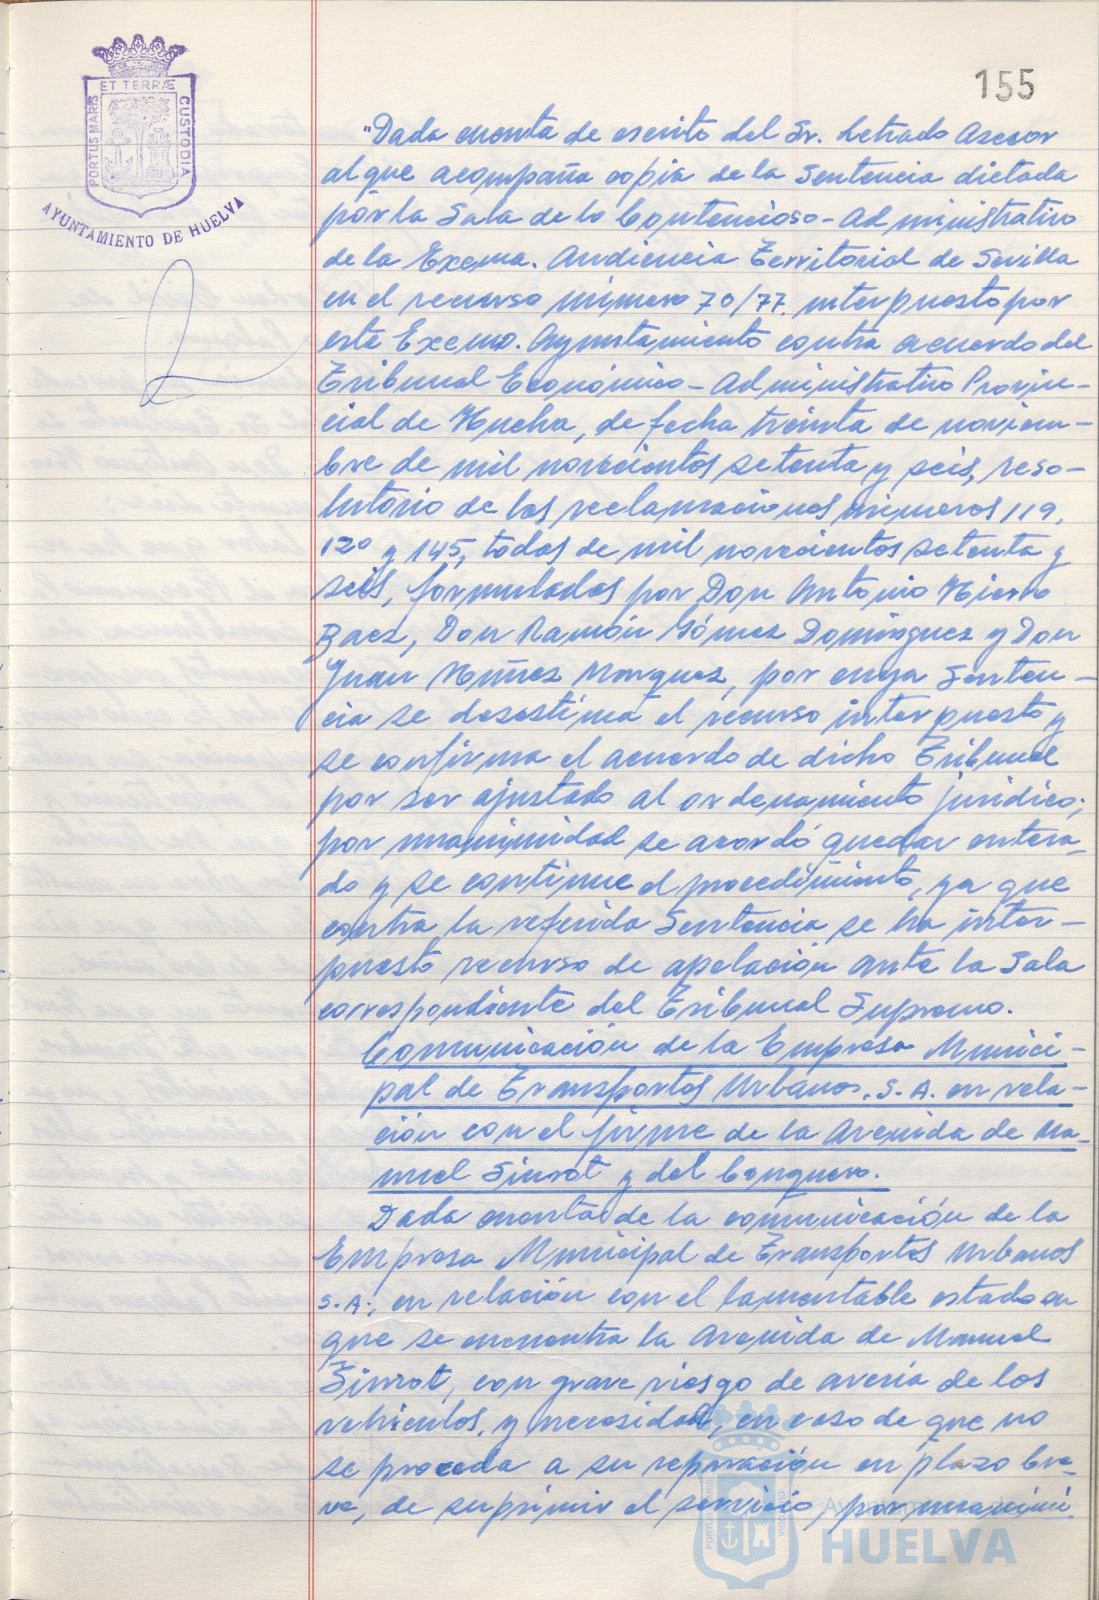 155
ET TERRÆ
PORTUS MARIS
CUSTODIA
AYUNTAMIENTO DE HUELVA
"Dada cuenta de escrito del Sr. Letrado Asesor
al que acompaña copia de la Sentencia dictada
por la Sala de lo Contencioso-Administrativo
de la Excma. Audiencia Territorial de Sevilla
en el recurso número 70/77. interpuesto por
este Excmo. Ayuntamiento contra acuerdo del
Tribunal Económico-Administrativo Provin-
cial de Huelva, de fecha treinta de noviem-
bre de mil novecientos setenta y seis, reso-
lutorio de las reclamaciones números 119,
120 y 145, todas de mil novecientos setenta y
seis, formuladas por Don Antonio Hierro
Baez, Don Ramón Gómez Domínguez y Don
Juan Núñez Marquez, por cuya Senten-
cia se desestima el recurso interpuesto y
se confirma el acuerdo de dicho Tribunal
por ser ajustado al ordenamiento jurídico;
por unanimidad se acordó quedar entera-
do y se continue el procedimiento, ya que
contra la referida Sentencia se ha inter-
puesto recurso de apelación ante la Sala
correspondiente del Tribunal Supremo.
Comunicación de la Empresa Munici-
pal de Transportes Urbanos, S.A. en rela-
ción con el firme de la Avenida de Ma-
nuel Siurot y del Conquero.
Dada cuenta de la comunicación de la
Empresa Municipal de Transportes Urbanos
S.A., en relación con el lamentable estado en
que se encuentra la Avenida de Manuel
Siurot, con grave riesgo de averia de los
vehículos, y necesidad, en caso de que no
se proceda a su reparación en plazo bre-
ve, de suprimir el servicio, por unanimi-
Ayuntamiento de
HUELVA